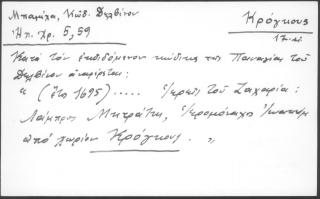 Μπαμίχα, Κώδ. Δελβίνου
Ἠπ. Χρ. 5, 59
Κρόγκους
17. αι.
Κατά τόν ἐκδιδόμενον κώδικα τῆς Παναγίας τοῦ
Δελβίνου ἀναφέρεται:
" (ἔτος 1695) ..... ἱερεῖς τοῦ Ζαχαρία:
Λάμπρος Μητράτης, ἱερομόναχος Ἰωαννίκ
ἀπό χωρίον Κρόγκους. "